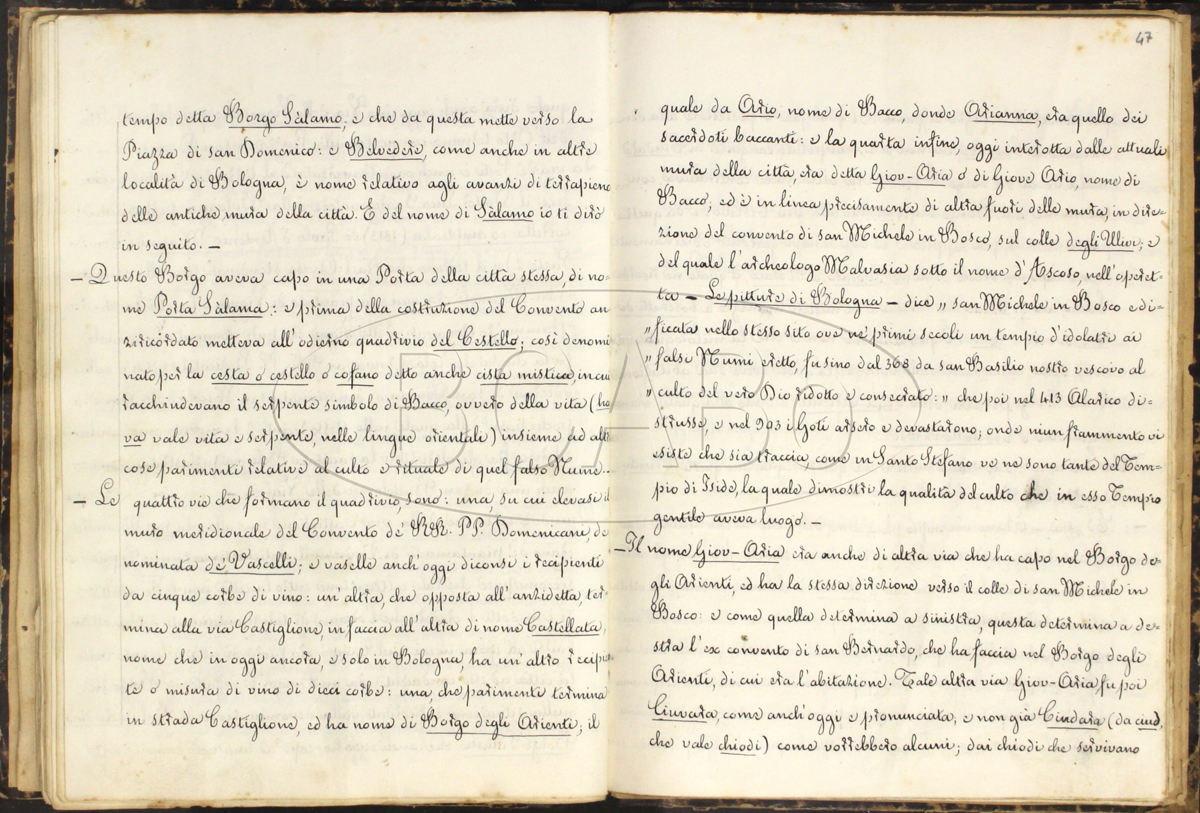 tempo detta Borgo Sàlamo; e che da questa mette verso la
Piazza di san Domenico: e Belvedere, come anche in altre
località di Bologna, è nome relativo agli avanzi di terrapieno
delle antiche mura della città. E del nome di Sàlamo io ti dirò
in seguito. —
— Questo Borgo aveva capo in una Porta della città stessa, di no=
me Porta Sàlamca: e prima della costruzione del Convento an
ziricordato metteva all'odierno quadrivio del Cestello; così denomi
nato per la cesta o cestello o cofano detto anche cista mistica, in cui
racchiudevano il serpente simbolo di Bacco, ovvero della vita (ho
va vale vita e serpente, nelle lingue orientale) insieme ad altre
cose parimenti relative al culto e rituale di quel falso Nume.
— Le quattro vie che formano il quadrivio, sono: una, su cui elevasi il
muro meridionale del Convento de' RR. PP. Domenicani, de
nominata de' Vascelli; e vaselle anch'oggi diconsi i recipienti
da cinque corbe di vino: un'altra, che opposta all'anzidetta, ter=
mina alla via Castiglione in faccia all'altra di nome Castellata,
nome che in oggi ancora, e solo in Bologna, ha un'altro recipien
te o misura di vino di dieci corbe: una che parimenti termina
in strada Castiglione, ed ha nome di Borgo degli Arienti; il
47
quale da Ario, nome di Bacco, donde Arianna, era quello dei
sacerdoti baccanti: e la quarta infine, oggi interotta dalle attuali
mura della città, era detta Giov-Aria o di Giove Ario, nome di
Bacco, ed è in linea precisamente di altra fuori delle mura, in dire=
zione del convento di san Michele in Bosco, sul colle degli Ulivi; e
del quale l'archeologo Malvasia sotto il nome d'Ascoso, nell'operet=
ta — Le pitture di Bologna — dice „ san Michele in Bosco edi=
„ ficata nello stesso sito ove ne' primi secoli un tempio d'idolatri ai
„ falsi Numi eretto, fu sino dal 368 da san Basilio nostro vescovo al
„ culto del vero Dio ridotto e consecrato: „ che poi nel 413 Alarico di=
strusse, e nel 903 i Goti arsero e devastarono; onde niun frammento vi
esiste che sia traccia, come in Santo Stefano ve ne sono tante del Tem=
pio di Iside, la quale dimostri la qualità del culto che in esso Tempio
gentile aveva luogo. —
— Il nome Giov-Aria era anche di altra via che ha capo nel Borgo de=
gli Arienti, ed ha la stessa direzione verso il colle di san Michele in
Bosco: e come quella determina a sinistra, questa determina a de=
stra l'ex convento di san Bernardo, che ha faccia nel Borgo degli
Arienti, di cui era l'abitazione. Tale altra via Giov-Aria fu poi
Ciuvara, come anch'oggi e pronunciata, e non già Ciudara (da ciud,
che vale chiodi) come vorrebbero alcuni; dai chiodi che servivano